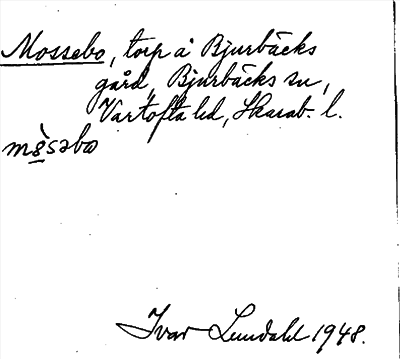 Mossebo, torp å Bjurbäcks
gård, Bjurbäcks sn,
Vartofta hd, Skarab. l.
mòsəbo
Ivar Lundahl 1948.